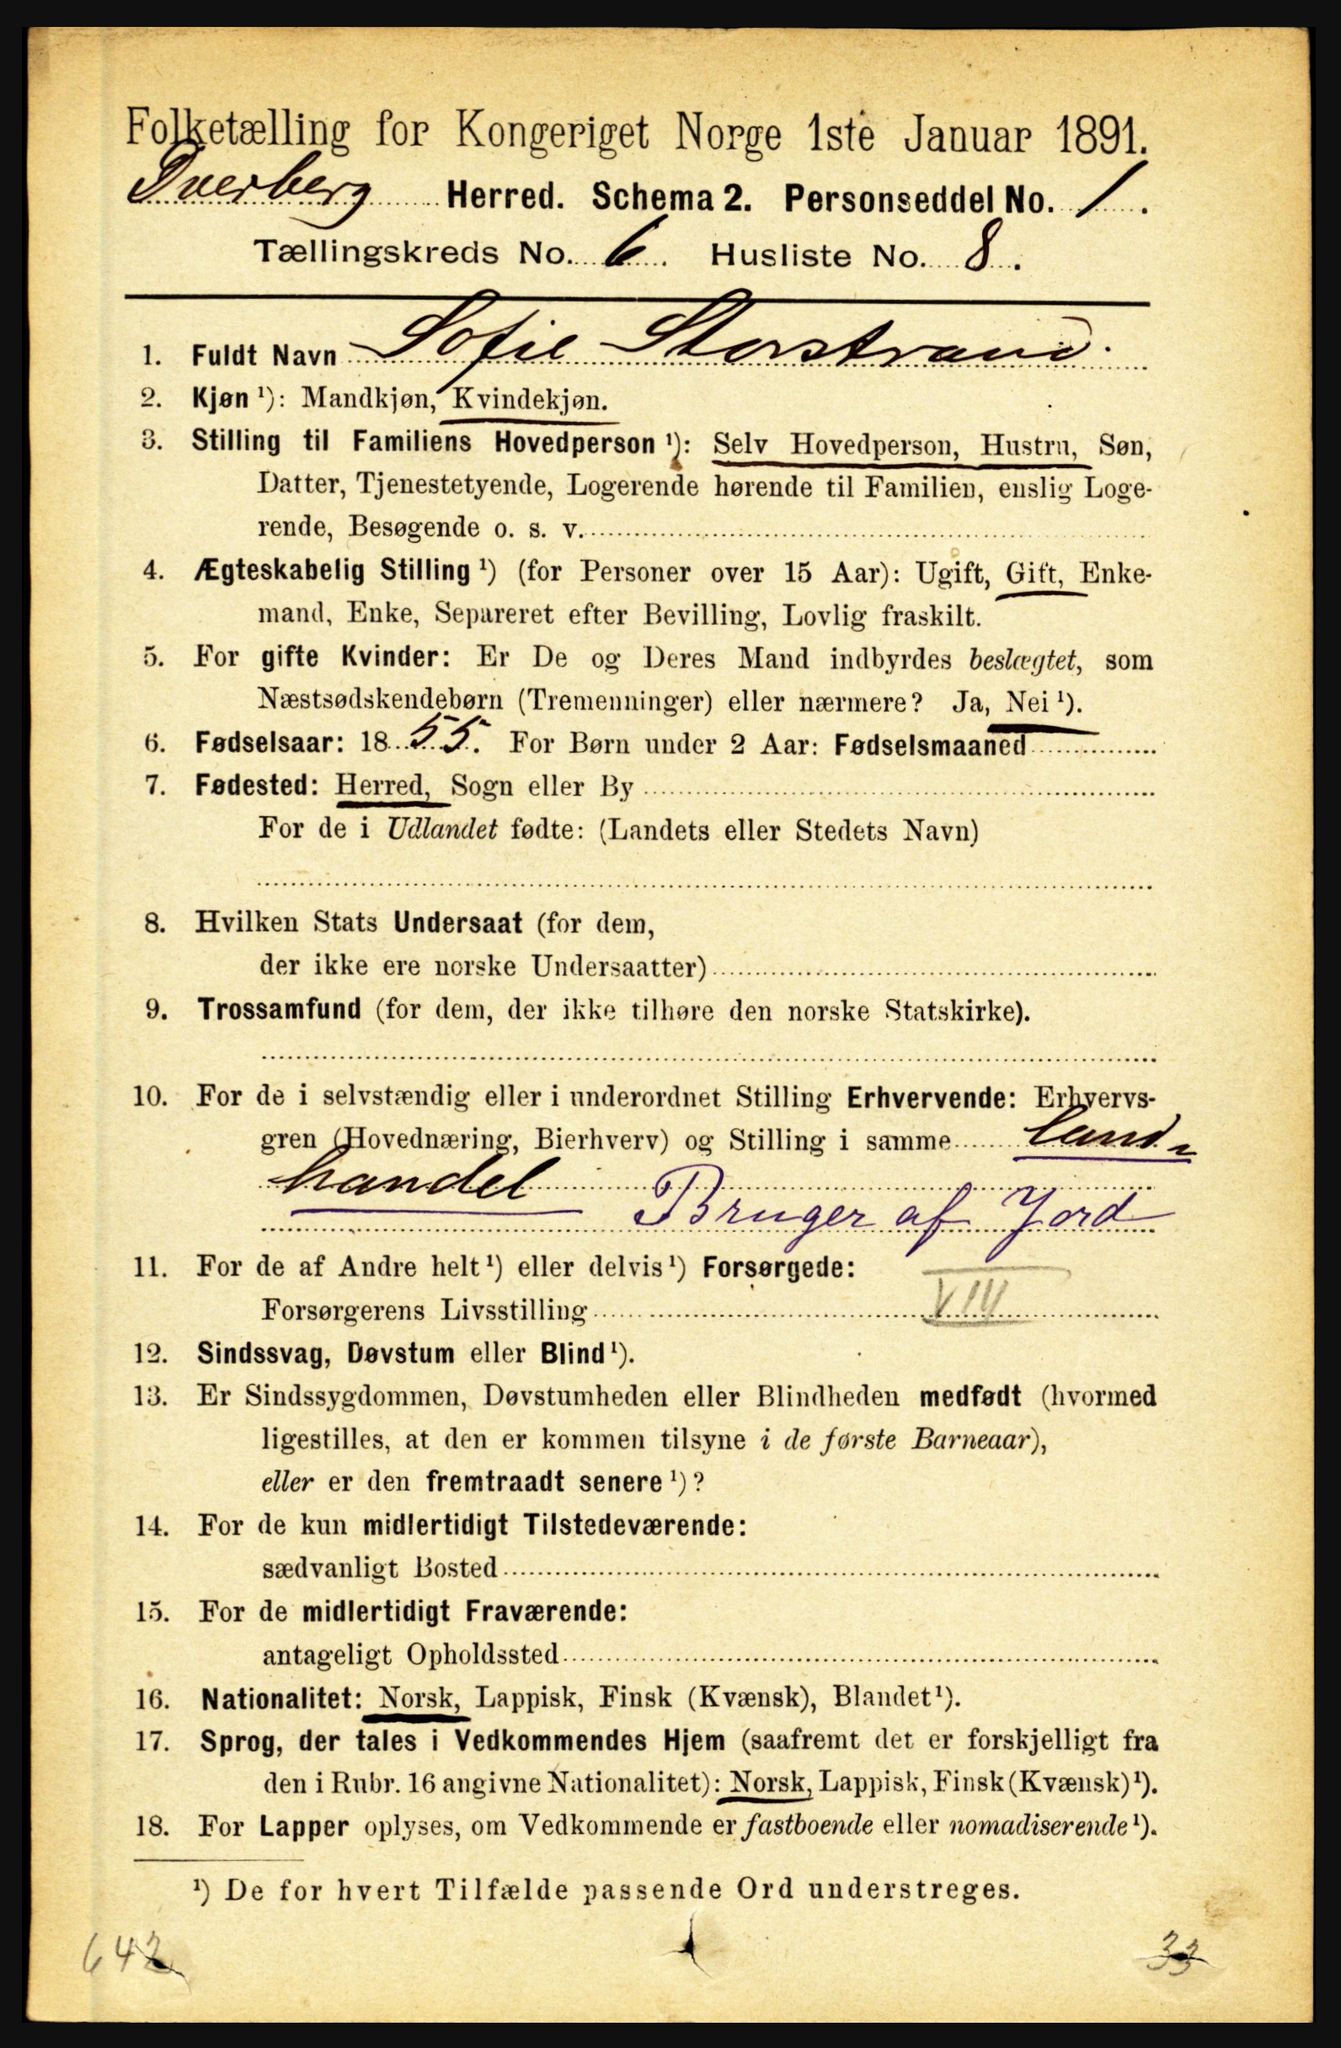 Folketælling for Kongeriget Norge 1ste Januar 1891.
Dverberg Herred. Schema 2. Personseddel No. 1.
Tællingskreds No. 6. Husliste No. 8.
1. Fuldt Navn Sofie Storstrand.
2. Kjøn ¹): Mandkjøn, Kvindekjøn.
3. Stilling til Familiens Hovedperson ¹): Selv Hovedperson, Hustru, Søn,
Datter, Tjenestetyende, Logerende hørende til Familien, enslig Loge-
rende, Besøgende o. s. v.
4. Ægteskabelig Stilling ¹) (for Personer over 15 Aar): Ugift, Gift, Enke-
mand, Enke, Separeret efter Bevilling, Lovlig fraskilt.
5. For gifte Kvinder: Er De og Deres Mand indbyrdes beslægtet, som
Næstsødskendebørn (Tremenninger) eller nærmere? Ja, Nei ¹).
6. Fødselsaar: 1855. For Børn under 2 Aar: Fødselsmaaned
7. Fødested: Herred, Sogn eller By
For de i Udlandet fødte: (Landets eller Stedets Navn)
8. Hvilken Stats Undersaat (for dem,
der ikke ere norske Undersaatter)
9. Trossamfund (for dem, der ikke tilhøre den norske Statskirke).
10. For de i selvstændig eller i underordnet Stilling Erhvervende: Erhvervs-
gren (Hovednæring, Bierhverv) og Stilling i samme Land-
handel Bruger af Jord
11. For de af Andre helt ¹) eller delvis ¹) Forsørgede:
Forsørgerens Livsstilling VIII
12. Sindssvag, Døvstum eller Blind ¹).
13. Er Sindssygdommen, Døvstumheden eller Blindheden medfødt (hvormed
ligestilles, at den er kommen tilsyne i de første Barneaar),
eller er den fremtraadt senere ¹)?
14. For de kun midlertidigt Tilstedeværende:
sædvanligt Bosted
15. For de midlertidigt Fraværende:
antageligt Opholdssted
16. Nationalitet: Norsk, Lappisk, Finsk (Kvænsk), Blandet ¹).
17. Sprog, der tales i Vedkommendes Hjem (saafremt det er forskjelligt fra
den i Rubr. 16 angivne Nationalitet): Norsk, Lappisk, Finsk (Kvænsk) ¹).
18. For Lapper oplyses, om Vedkommende er fastboende eller nomadiserende ¹).
¹) De for hvert Tilfælde passende Ord understreges.
642 33